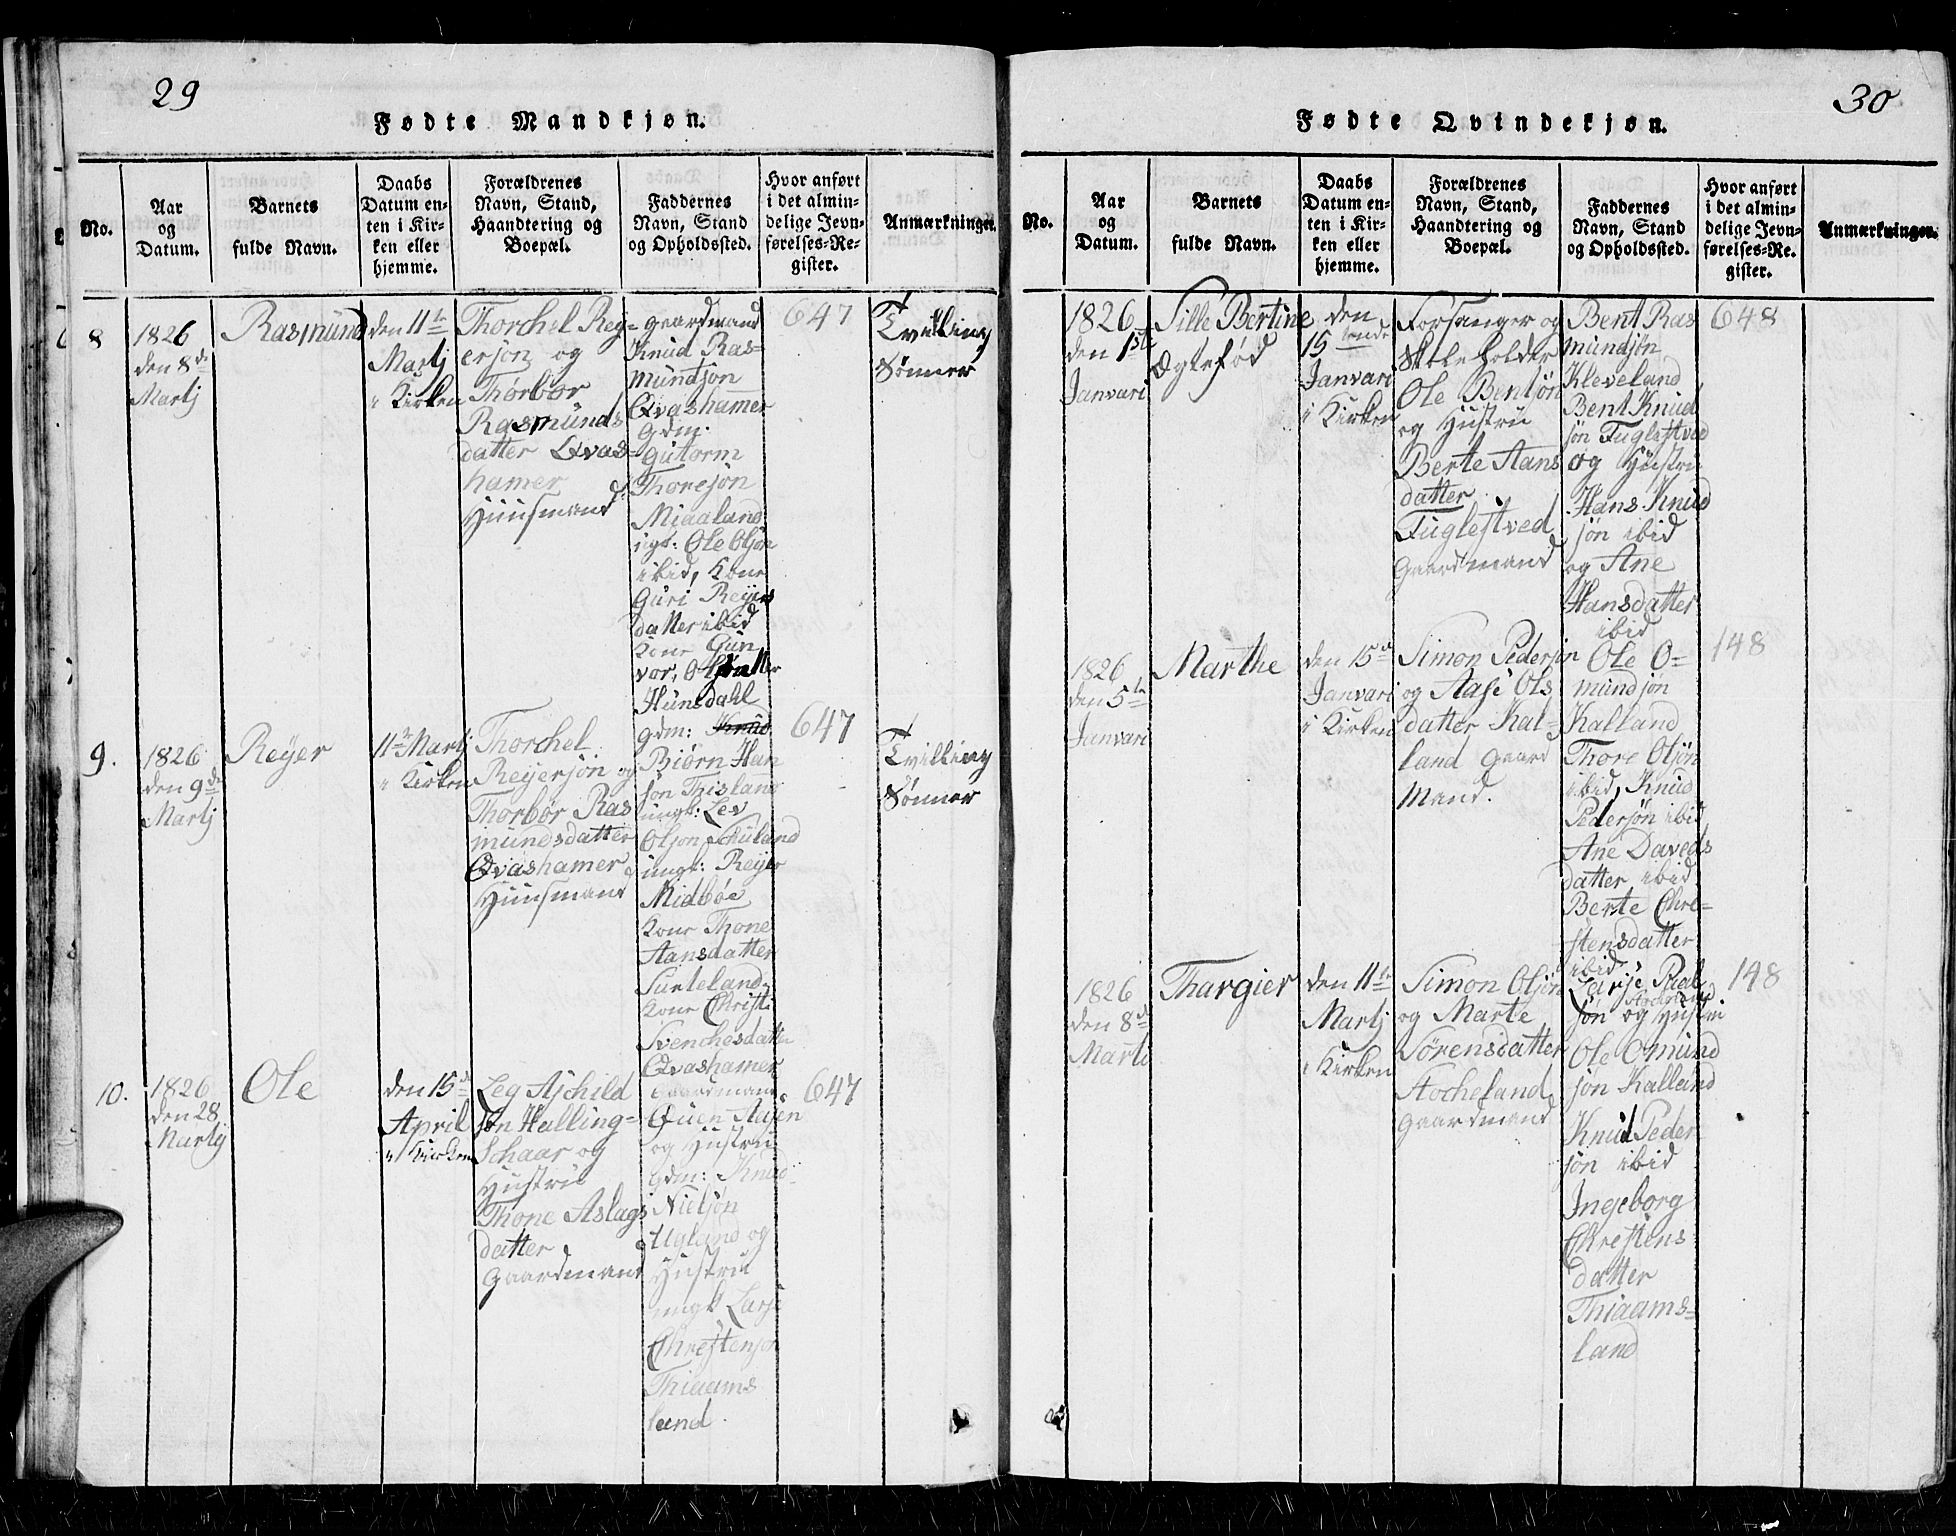 29
Fødte Mandkjøn.
No.
Aar
og
Datum.
Barnets
fulde Navn.
Daabs
Datum en-
ten i Kir-
ken eller
hjemme.
Forældrenes
Navn, Stand,
Haandtering og
Boepæl.
Faddernes
Navn, Stand
og Opholdssted.
Hvor anført
i det almin-
delige Jevn-
førelses-Re-
gister.
Anmærkninger.
8
1826
den 8de
Martj
Rasmund
den 11te
Martj
i Kirken
Thorchel Rey-
erjøn og
Thørbor
Rasmunds
datter Qvas-
hamer
Huusmand
gaardmand
Knud Ras-
mundsøn
Qvashamer
gdm.
Gutorm
Thorejøn
Miaaland
ugk: Ole Oljøn
ibid, Kone
Guri Reyers
datter ibid
Kone Gun
vor, Olsdatter
Hunsdahl
647
Tvilling
Sønner
9.
1826
den 9de
Martj
Reyer
11te Martj
i Kirken
Thorchel
Reyerjøn og
Thorbør Ras
mundsdatter
Qvashamer
Huusmand
gdm: Knud
Biørn Han
søn Thisland
ungk: Lev
Oljøn Schuland
ungk: Reyer
Midbøe
Kone Thone
Aansdatter
Surteland
Kone Christi
Svenchesdatter
Qvashamer
647
Tvilling
Sønner
10.
1826
den 28
Martij
Ole
den 15de
April
i Kirken
Leg Ajchild
søn Halling-
Schaar og
Hustru
Thone Aslags
datter
Gaardmand
Gaardmand
Quen Aasen
og Hustru
gdm: Knud
Nieljøn
Ugland og
Hustru
ungk Larse
Chrestenjøn
Thiaams
land.
647
30
Fødte Qvindekjøn.
No.
Aar
og
Datum.
Barnets
fulde Navn.
Daabs
Datum en-
ten i Kir-
ken eller
hjemme.
Forældrenes
Navn, Stand,
Haandtering og
Boepæl.
Faddernes
Navn, Stand
og Opholdssted.
Hvor anført
i det almin-
delige Jevn-
førelses-Re-
gister.
Anmærkninger.
1826
den 1ste
Janvari
Sille Bertine
Ægtefød
den
15 tende
Janvari
i Kirken
Forsanger og
Skoleholder
Ole Bentjøn
og Hustru
Berte Aans
datter
Fuglestved
Gaardmand
Bent Ras
mundsjøn
Kleveland
Bent Knud
jøn Fuglestved
og Hustru
Hans Knud
jøn ibid
og Ane
Hansdatter
ibid
648
1826
den 5te
Janvari
Marthe
den 15de
Janvari
i Kirken
Simon Pedersjøn
og Aase Ols
datter Kal-
land Gaard
Mand.
Ole O-
mundjøn
Kalland
Thore Oljøn
ibid, Knud
Pedersjøn ibid
Ane Daveds
datter ibid
Berte Chre-
stensdatter
ibid
148
1826
den 8de
Marti
Thargier
den 11te
Martj
i Kirken
Simon Oljøn
og Marte
Sørensdatter
Stocheland
Gaardmand
Larse Paal
Stocheland
søn og Hustru
Ole Omund
jøn Kalland
Knud Peder
jøn ibid
Ingeborg
Chrestens
datter
Thiaams-
land
148